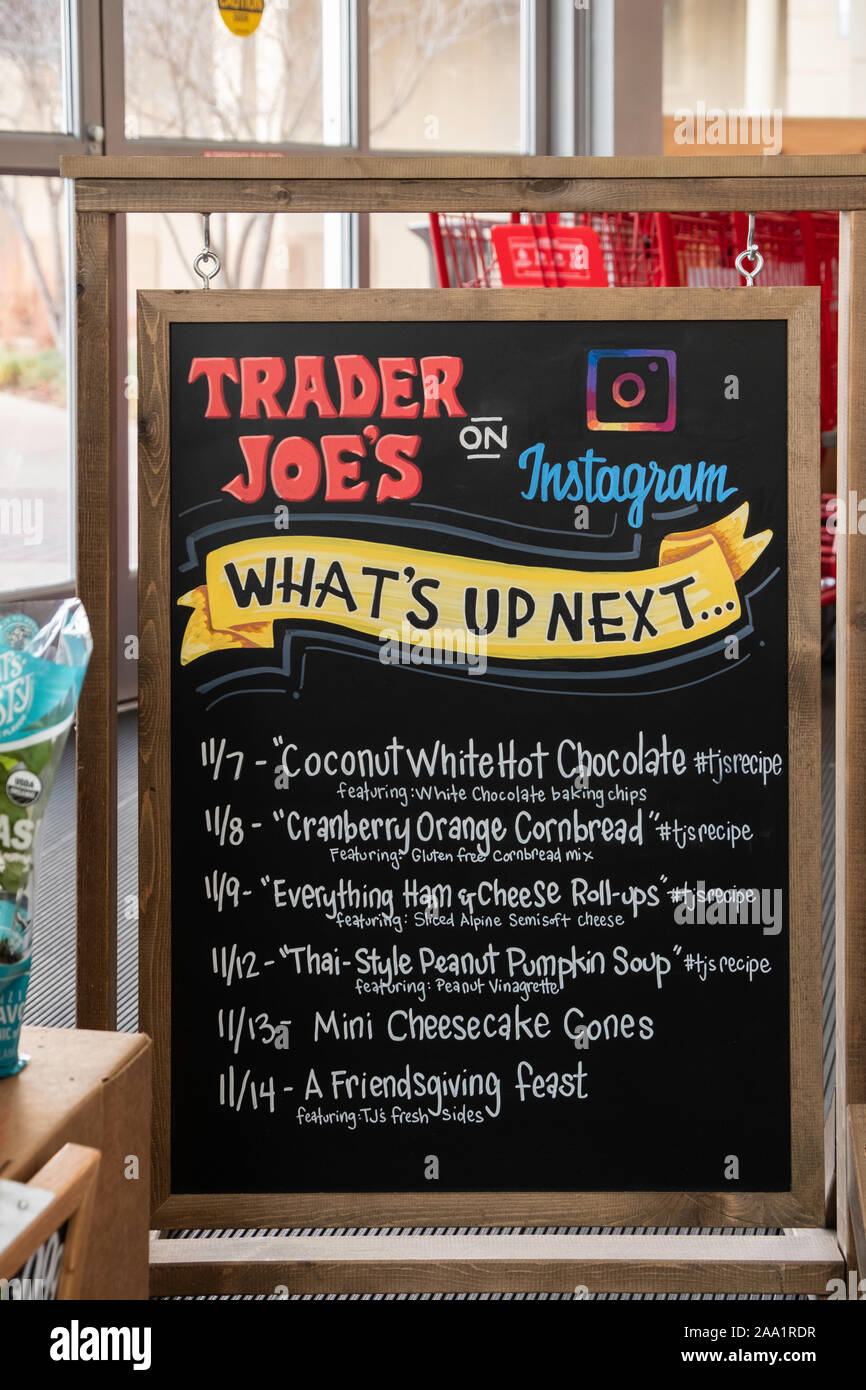 CAUTION
TRADER
JOE'S
ON
Instagram
WHAT'S UP NEXT...
11/7 - "Coconut White Hot Chocolate #tjsrecipe
featuring: White Chocolate baking chips
11/8 - "Cranberry Orange Cornbread" #tjsrecipe
Featuring: Gluten free Cornbread mix
11/9 - "Everything Ham & Cheese Roll-ups" #tjsrecipe
featuring: Sliced Alpine Semisoft cheese
11/12 - "Thai-Style Peanut Pumpkin Soup" #tjsrecipe
featuring: Peanut Vinagrette
11/13 - Mini Cheesecake Cones
11/14 - A Friendsgiving feast
featuring: TJ's fresh sides
USDA
ORGANIC
alamy
Image ID: 2AA1RDR
www.alamy.com